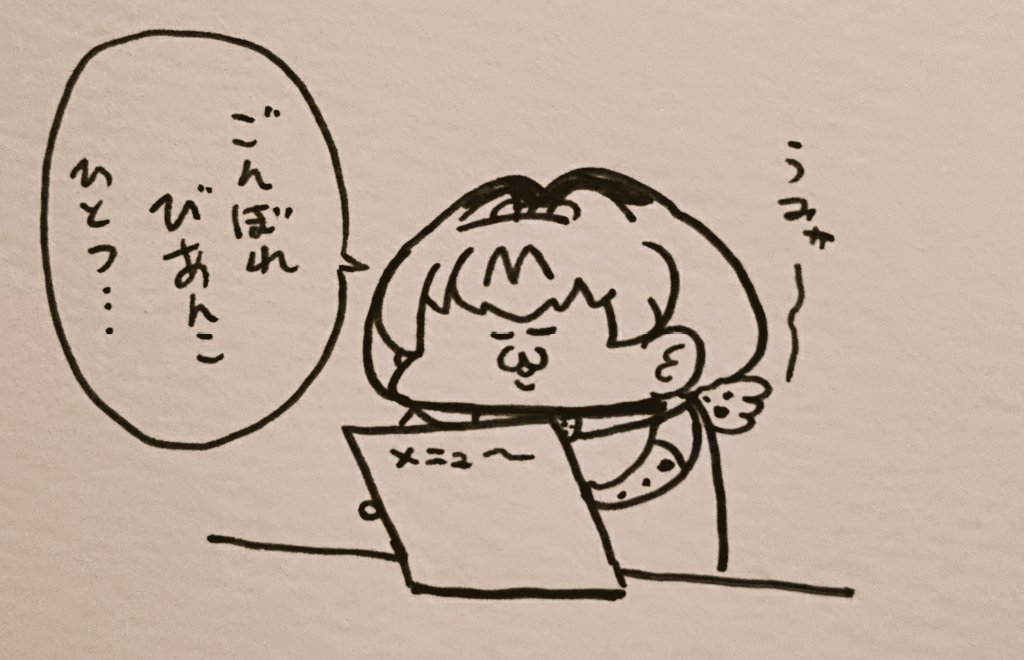 ごんぼれ
びあんこ
ひとつ…
うみゃ〜
メニュ〜